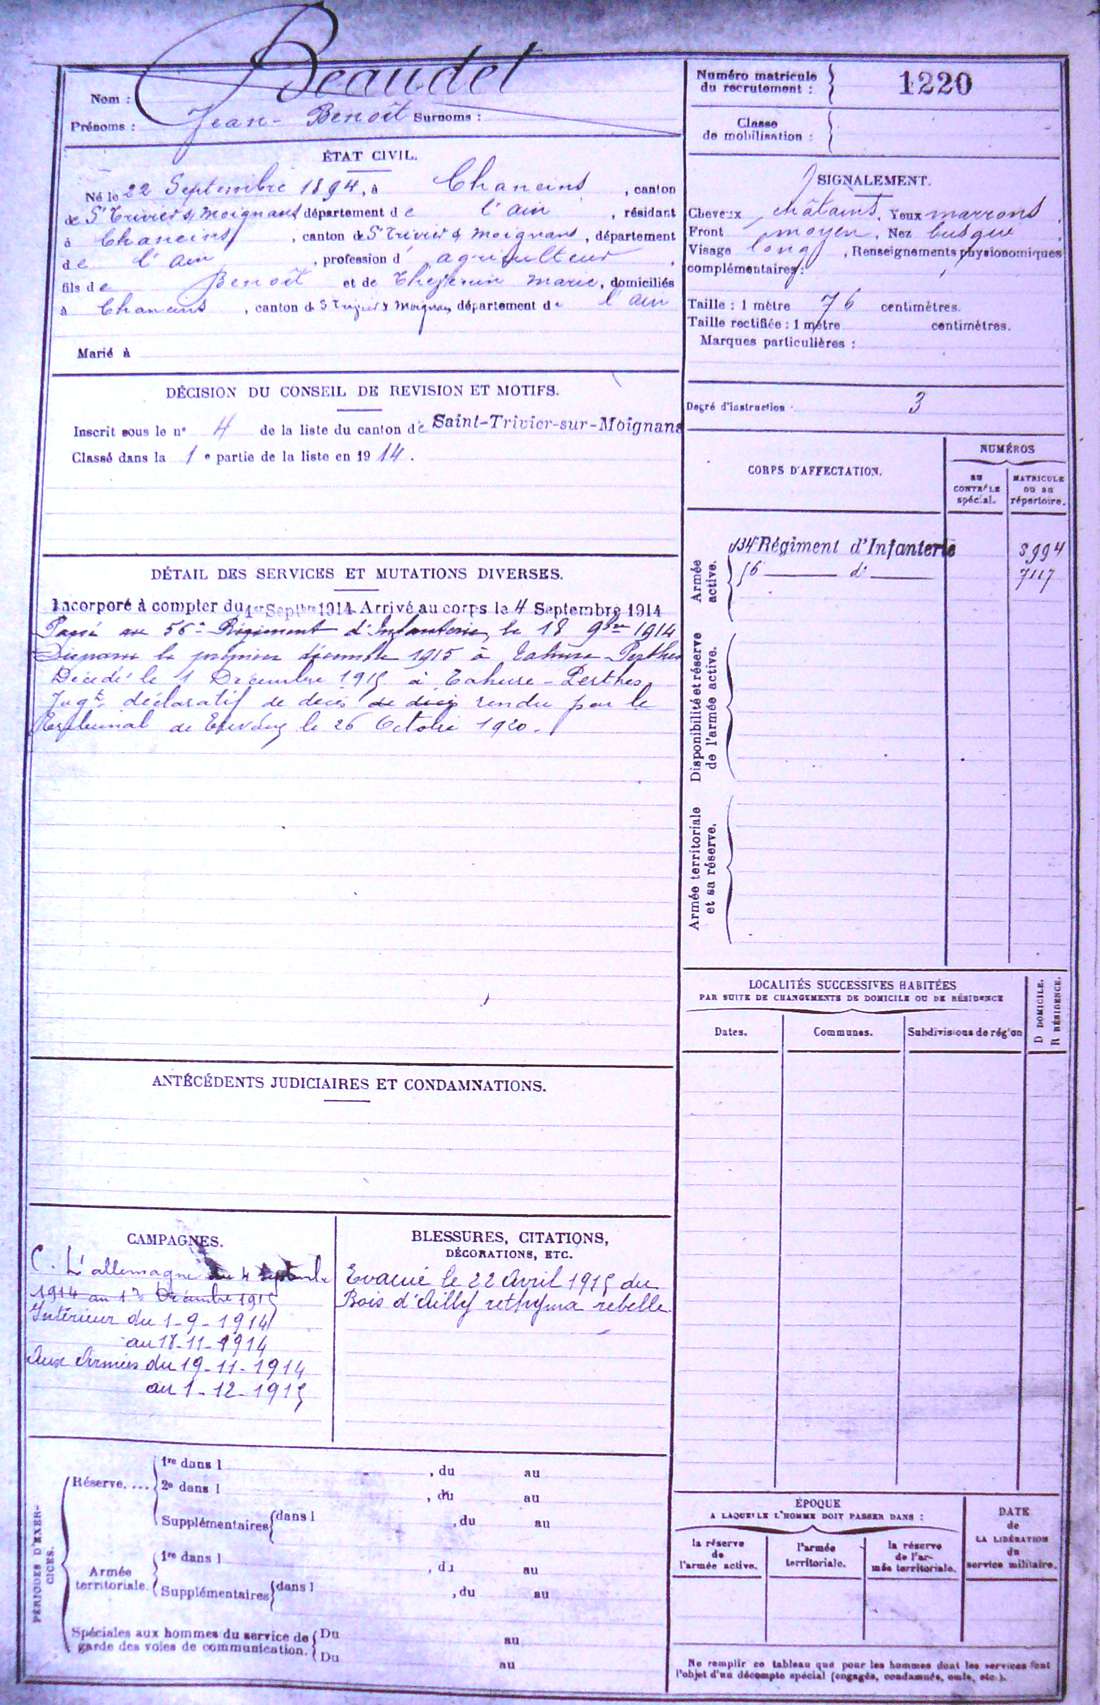 Nom : Beaudet
Prénoms : Jean- Benoît Surnoms :
ÉTAT CIVIL.
Né le 22 Septembre 1894, à Chaneins , canton
de St Trivier s Moignans département de l'ain , résidant
à Chaneins , canton de St Trivier s Moignans , département
de l'ain , profession d' agriculteur ,
fils de Benoît et de Thevenin Marie, domiciliés
à Chaneins , canton de S Trivier s Moignans département de l'ain
Marié à
DÉCISION DU CONSEIL DE REVISION ET MOTIFS.
Inscrit sous le n° 4 de la liste du canton de Saint-Trivier-sur-Moignans
Classé dans la 1e partie de la liste en 1914.
DÉTAIL DES SERVICES ET MUTATIONS DIVERSES.
Incorporé à compter du 1er Septbre 1914 Arrivé au corps le 4 Septembre 1914
Passé au 56e Régiment d'Infanterie le 18 9bre 1914
Disparu le premier décembre 1915 à Tahure Perthes
Décédé le 1 Décembre 1915 à Tahure-Perthes
Jugt déclaratif de décès de décès rendu par le
Tribunal de Trévoux le 26 Octobre 1920.
ANTÉCÉDENTS JUDICIAIRES ET CONDAMNATIONS.
CAMPAGNES.
C. L'allemagne du 4 Septembre
1914 au 1er Décembre 1915
Intérieur du 1-9-1914
au 18-11-1914
Aux Armées du 19-11-1914
au 1-12-1915
BLESSURES, CITATIONS,
DÉCORATIONS, ETC.
Evacué le 22 Avril 1915 du
Bois d'Ailly rebelle
PÉRIODES D'EXERCICES.
Réserve....
1re dans l , du au
2e dans l , du au
Supplémentaires dans l , du au
Armée
territoriale.
1re dans l , du au
Supplémentaires dans l , du au
Spéciales aux hommes du service de
garde des voies de communication.
Du au
Du au
Numéro matricule
du recrutement : 1220
Classe
de mobilisation :
SIGNALEMENT.
Cheveux châtains. Yeux marrons
Front moyen. Nez busqué
Visage long , Renseignements physionomiques
complémentaires :
Taille : 1 mètre 76 centimètres.
Taille rectifiée : 1 mètre centimètres.
Marques particulières :
Degré d'instruction : 3
CORPS D'AFFECTATION.
NUMÉROS
AU
CONTRÔLE
spécial.
MATRICULE
OU AU
répertoire.
Armée
active.
134e Régiment d'Infanterie 3994
56 — d° — 7117
Disponibilité et réserve
de l'armée active.
Armée territoriale
et sa réserve.
LOCALITÉS SUCCESSIVES HABITÉES
PAR SUITE DE CHANGEMENTS DE DOMICILE OU DE RÉSIDENCE
Dates.
Communes.
Subdivisions de région
D DOMICILE.
R RÉSIDENCE.
ÉPOQUE
A LAQUELLE L'HOMME DOIT PASSER DANS :
la réserve
de
l'armée active.
l'armée
territoriale.
la réserve
de l'ar-
mée territoriale.
DATE
de
LA LIBÉRATION
du
service militaire.
Ne remplir ce tableau que pour les hommes dont les services font
l'objet d'un décompte spécial (engagés, condamnés, omis, etc.).